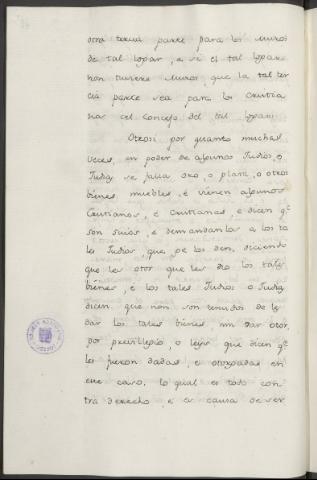 otra tercia parte para los muros
de tal logar, e si el tal logar
non tuviere muros, que la tal ter
cia parte sea para los
del concejo del tal logar.
Otrosi por quanto muchas
veces, en poder de algunos Judios, o
Judias se falla oro, o plata, o otros
bienes muebles, e vienen algunos
Christianos, e Christianas, e dicen q.e
son suios, e demandanlos a los ta
les Judios que ge los den, diciendo
que les otor que les dio los tales
bienes, e los tales Judios o Judias
dicen que non son tenudos de le
dar los tales bienes, nin dar otor,
por previllejio, o leies que dicen q.e
les fueron dadas, e otorgadas en
este caso, lo qual es todo con
tra derecho e es causa de ser